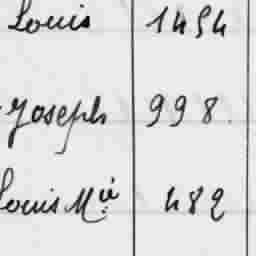 Louis 1454
Joseph 998.
Louis M^ie 482